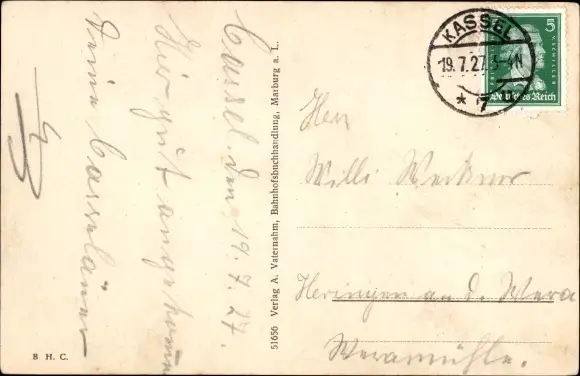 Cassel, den 19.7.27.
Hier gut angekommen
Deine Casselaner
51656 Verlag A. Vaternahm, Bahnhofsbuchhandlung, Marburg a. L.
B H. C.
KASSEL
19.7.27. 3-4N
* 7
5
Deutsches Reich
Herr
Willi
Heringen a. d. Werra
Werramühle.